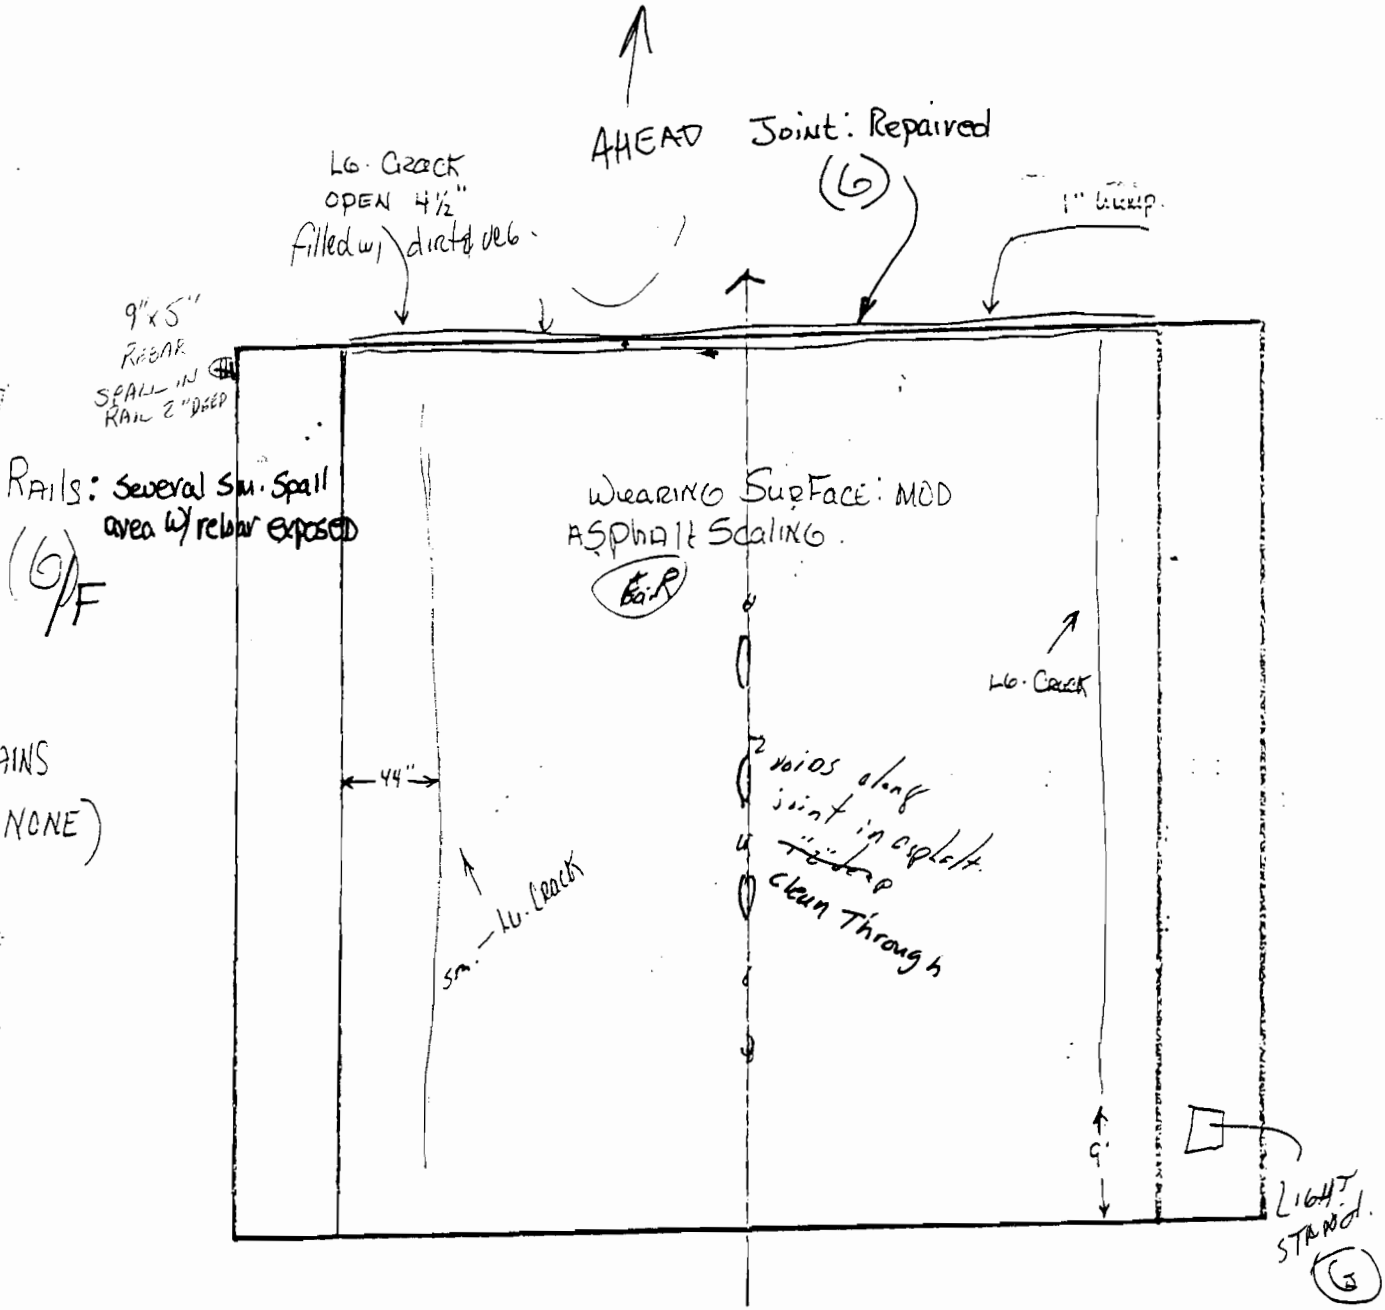 AHEAD
Joint: Repaired
(6)
LG. Crack
OPEN 4½"
filled w/ dirt & veg.
1" bump.
9" x 5"
REBAR
SPALL IN
RAIL 2" DEEP
RAILS: Several Sm. Spall
area w/ rebar exposed
(6)/F
WEARING SURFACE: MOD
ASPHALT Scaling.
FaiR
LG. CRACK
AINS
NONE)
44"
voids along
joint in asphalt.
clean Through
sm. — LG. CRACK
9'
LIGHT
STAND.
G